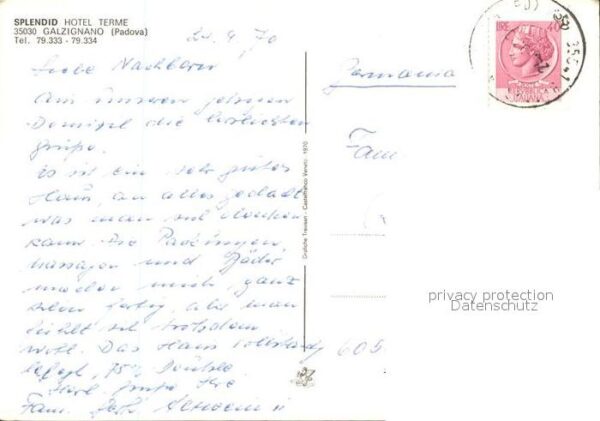 SPLENDID HOTEL TERME
35030 GALZIGNANO (Padova)
Tel. 79.333 - 79.334
24. 9. 70
Liebe Nachbarn
Von unserem jetzigen
Domizil die herzlichsten
Grüße.
Es ist ein sehr gutes
Haus, an alles gedacht
was man sich denken
kann. Die Packungen,
Massagen und Bäder
machen mich ganz
schön fertig, aber man
fühlt sich trotzdem
wohl. Das Haus vollständig
belegt, 75% Deutsche.
Herzl. Grüße Ihre
Fam.
Grafiche Trevisan - Castelfranco Veneto - 1970
LIRE 40
REPUBBLICA
ITALIANA
Germania
Fam
605
privacy protection
Datenschutz